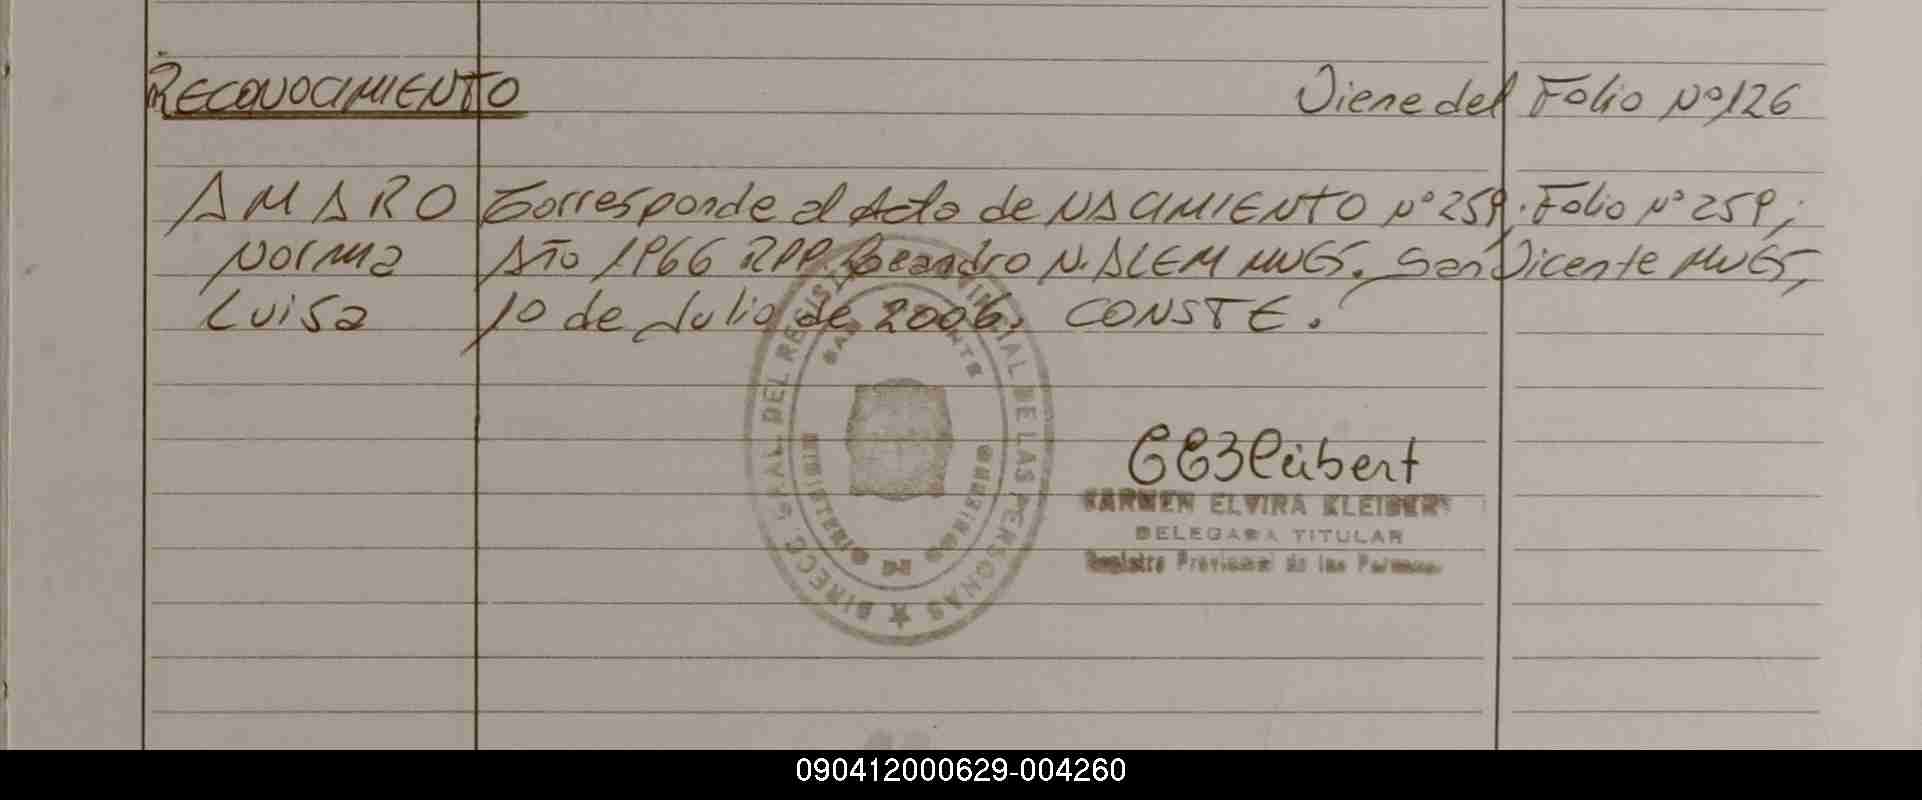 RECONOCIMIENTO Viene del Folio Nº 126
AMARO Corresponde al Acta de NACIMIENTO Nº 259. Folio Nº 259;
Norma Año 1966 RPP. Leandro N. ALEM MNES. San Vicente MNES,
Luisa 10 de Julio de 2006. CONSTE.
CARMEN ELVIRA KLEIBERT
DELEGADA TITULAR
Registro Provincial de las Personas
DEL REGISTRO PROVINCIAL DE LAS PERSONAS
MISIONES
090412000629-004260